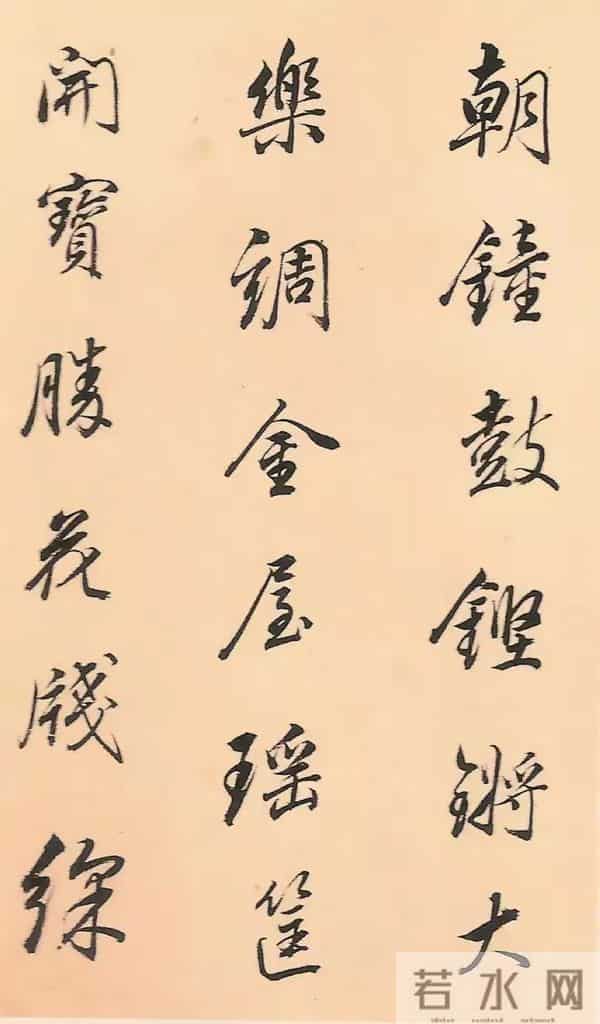 朝鐘鼓鏗鏘大
樂調金屋瑤筐
開寶勝花牋綵
若水网